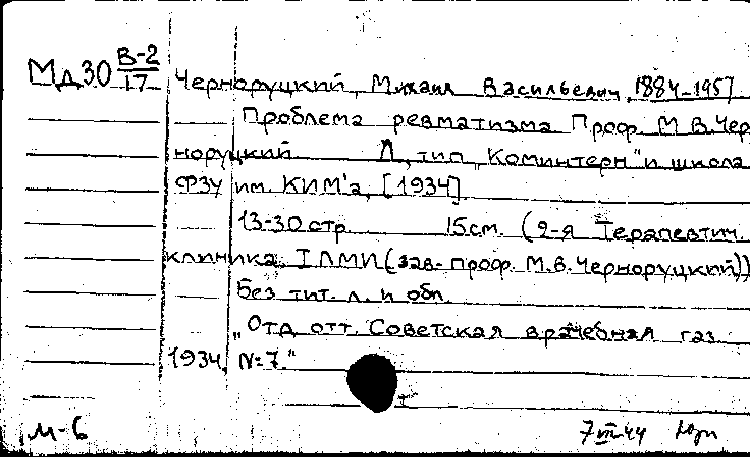 Мд30 В-2/17
Черноруцкий, Михаил Васильевич, 1884-1957
Проблема ревматизма Проф. М.В.Чер
норуцкий Л, тип „Коминтерн" и школа
ФЗУ им. КИМ'а, [1934]
13-30 стр 15см. (2-я Терапевтич.
клиника I ЛМИ (зав- проф. М.В.Черноруцкий))
Без тит. л. и обл.
„Отд отт. Советская врачебная газ
1934, №7."
м-6
7 VII 44